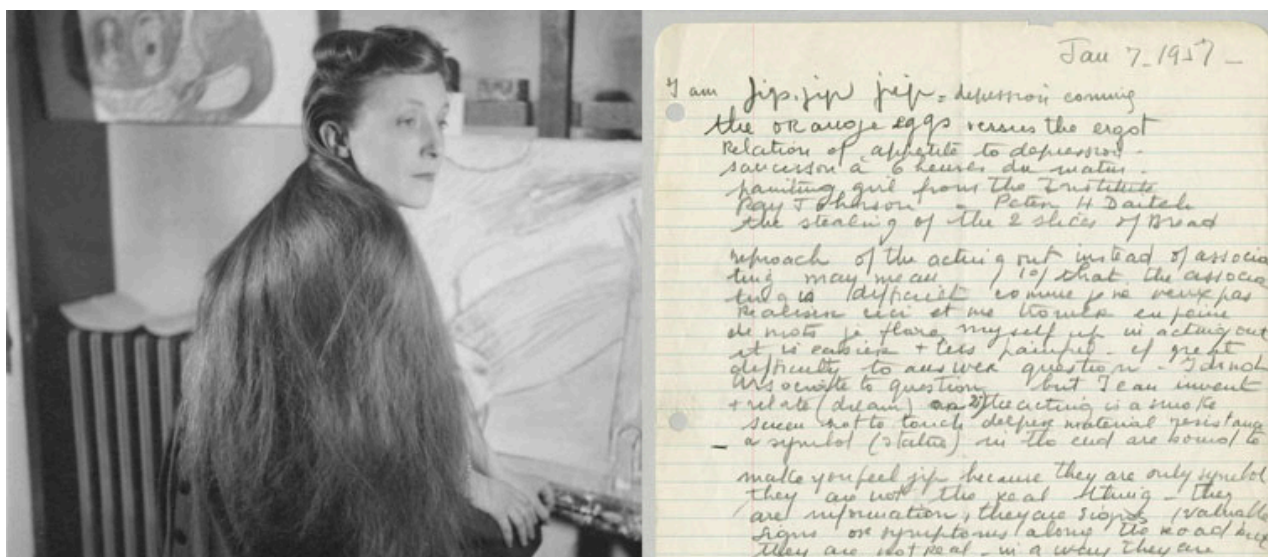 Jan 7_1957 _
I am jip. jip jip = depression coming
the orange eggs versus the ergot
Relation of appetite to depression.
saucisson à 6 heures du matin.
painting girl from the Institute
Ray Johnson - Peter H Daitch
the stealing of the 2 slices of Bread
reproach of the acting out instead of associa
ting may mean 1o/ that the associa
ting is difficult comme je ne veux pas
realiser ici et me trouve en peine
de mots je flare myself up in acting out
it is easier + less painful - cf great
difficulty to answer question - I do not
associate to question but I can invent
+ relate (dream) 2o/ the acting is a smoke
screen not to touch deeper material resistance
- a symbol (statue) in the end are bound to
make you feel jip because they are only symbol
they are not the real thing - they
are information, they are signs (valuable
signs or symptoms along the road but
they are not real - in a way they are